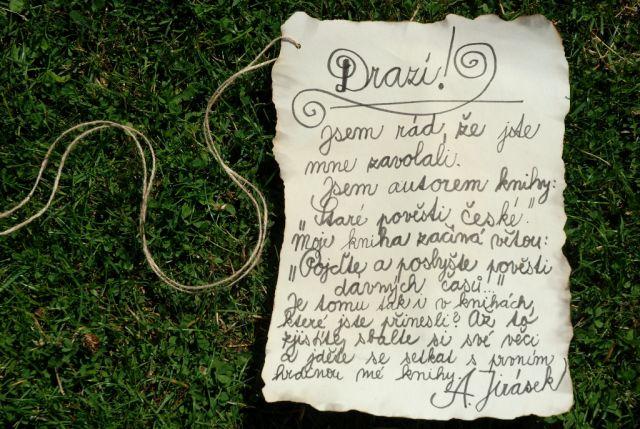 Drazí!
Jsem rád, že jste
mne zavolali.
Jsem autorem knihy:
„Staré pověsti české."
„Moje kniha začíná větou:
„Pojďte a poslyšte pověsti
dávných časů..."
Je tomu tak i v knihách,
které jste přinesli? Až to
zjistíte, sbalte si své věci
a jděte se setkat s prvním
hrdinou mé knihy.
A. Jirásek